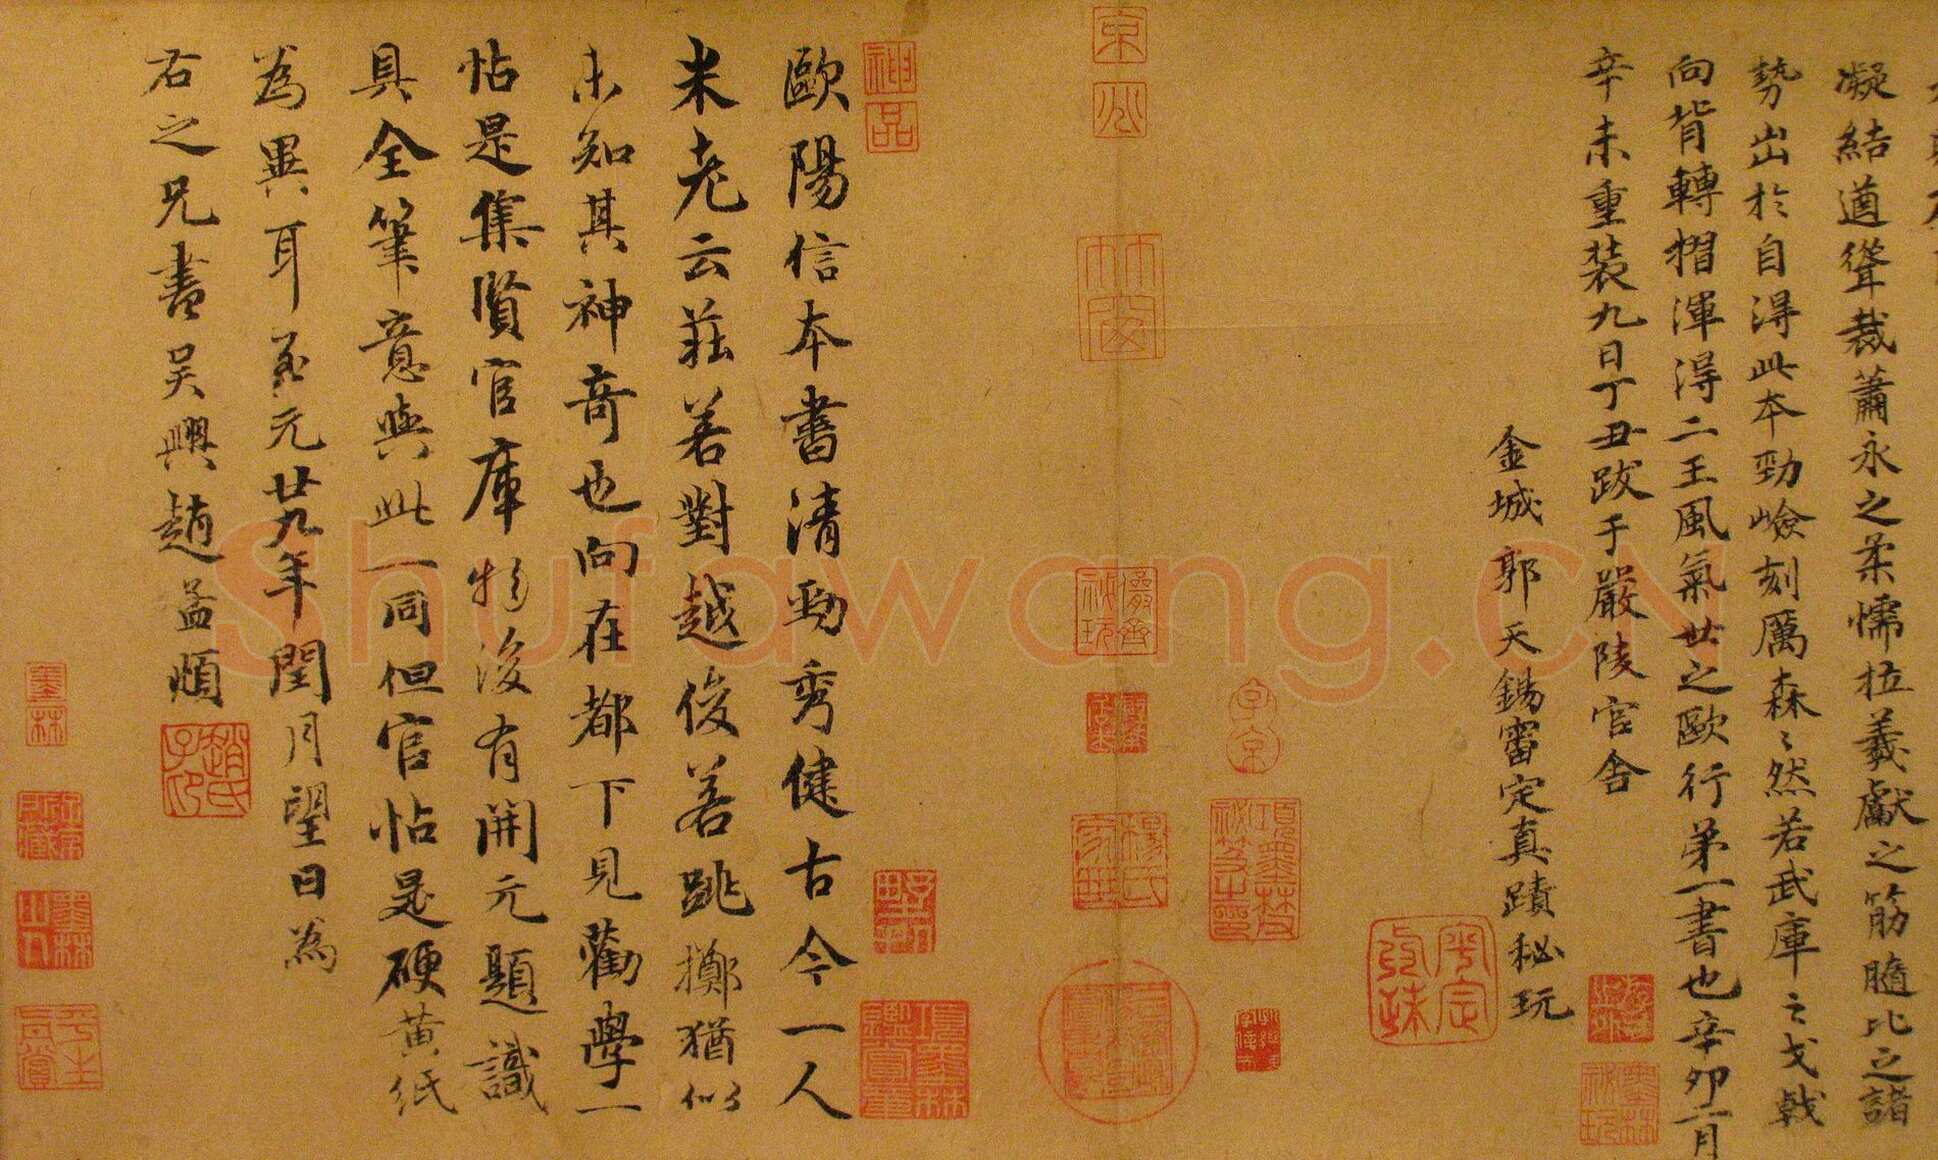 凝結遒聳裁蕭永之柔懦拉羲獻之筋髓比之諸
勢出於自得此本勁嶮刻厲森〻然若武庫之戈戟
向背轉摺渾得二王風氣世之歐行弟一書也辛卯二月
辛未重裝九日丁丑跋于嚴陵官舍
金城郭天錫審定真蹟秘玩
歐陽信本書清勁秀健古今一人
米老云莊若對越俊若跳擲猶似
未知其神奇也向在都下見勸學一
帖是集賢官庫物後有開元題識
具全筆意與此一同但官帖是硬黃紙
為異耳至元廿九年閏月望日為
右之兄書吳興趙孟頫
神品
子京
墨林
趙氏子印
Shufawang.CN